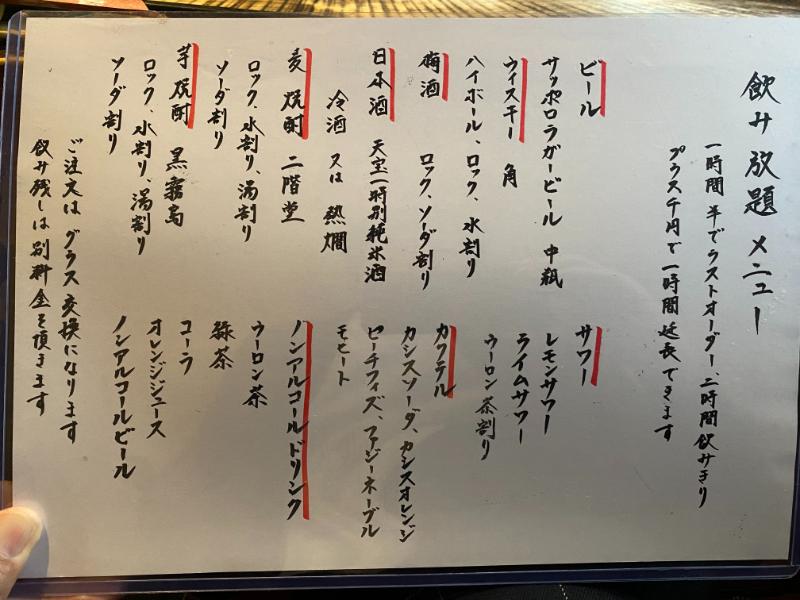 飲み放題 メニュー
一時間半でラストオーダー、二時間飲みきり
プラス千円で一時間延長できます
ビール
サッポロラガービール 中瓶
ウィスキー 角
ハイボール、ロック、水割り
梅酒 ロック、ソーダ割り
日本酒 天宝一特別純米酒
冷酒 又は 熱燗
麦焼酎 二階堂
ロック、水割り、湯割り
ソーダ割り
芋焼酎 黒霧島
ロック、水割り、湯割り
ソーダ割り
サワー
レモンサワー
ライムサワー
ウーロン茶割り
カクテル
カシスソーダ、カシスオレンジ
ピーチフィズ、ファジーネーブル
モヒート
ノンアルコールドリンク
ウーロン茶
緑茶
コーラ
オレンジジュース
ノンアルコールビール
ご注文はグラス交換になります
飲み残しは別料金を頂きます